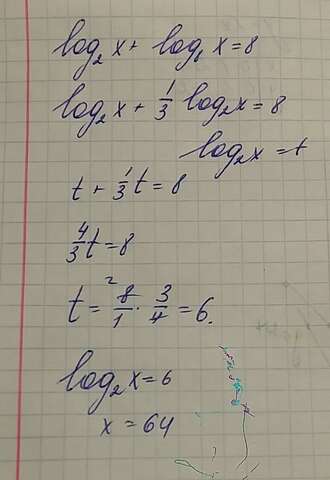 log₂ x + log₈ x = 8
log₂ x + 1/3 log₂ x = 8
log₂ x = t
t + 1/3 t = 8
4/3 t = 8
t = 8/1 · 3/4 = 6.
log₂ x = 6
x = 64